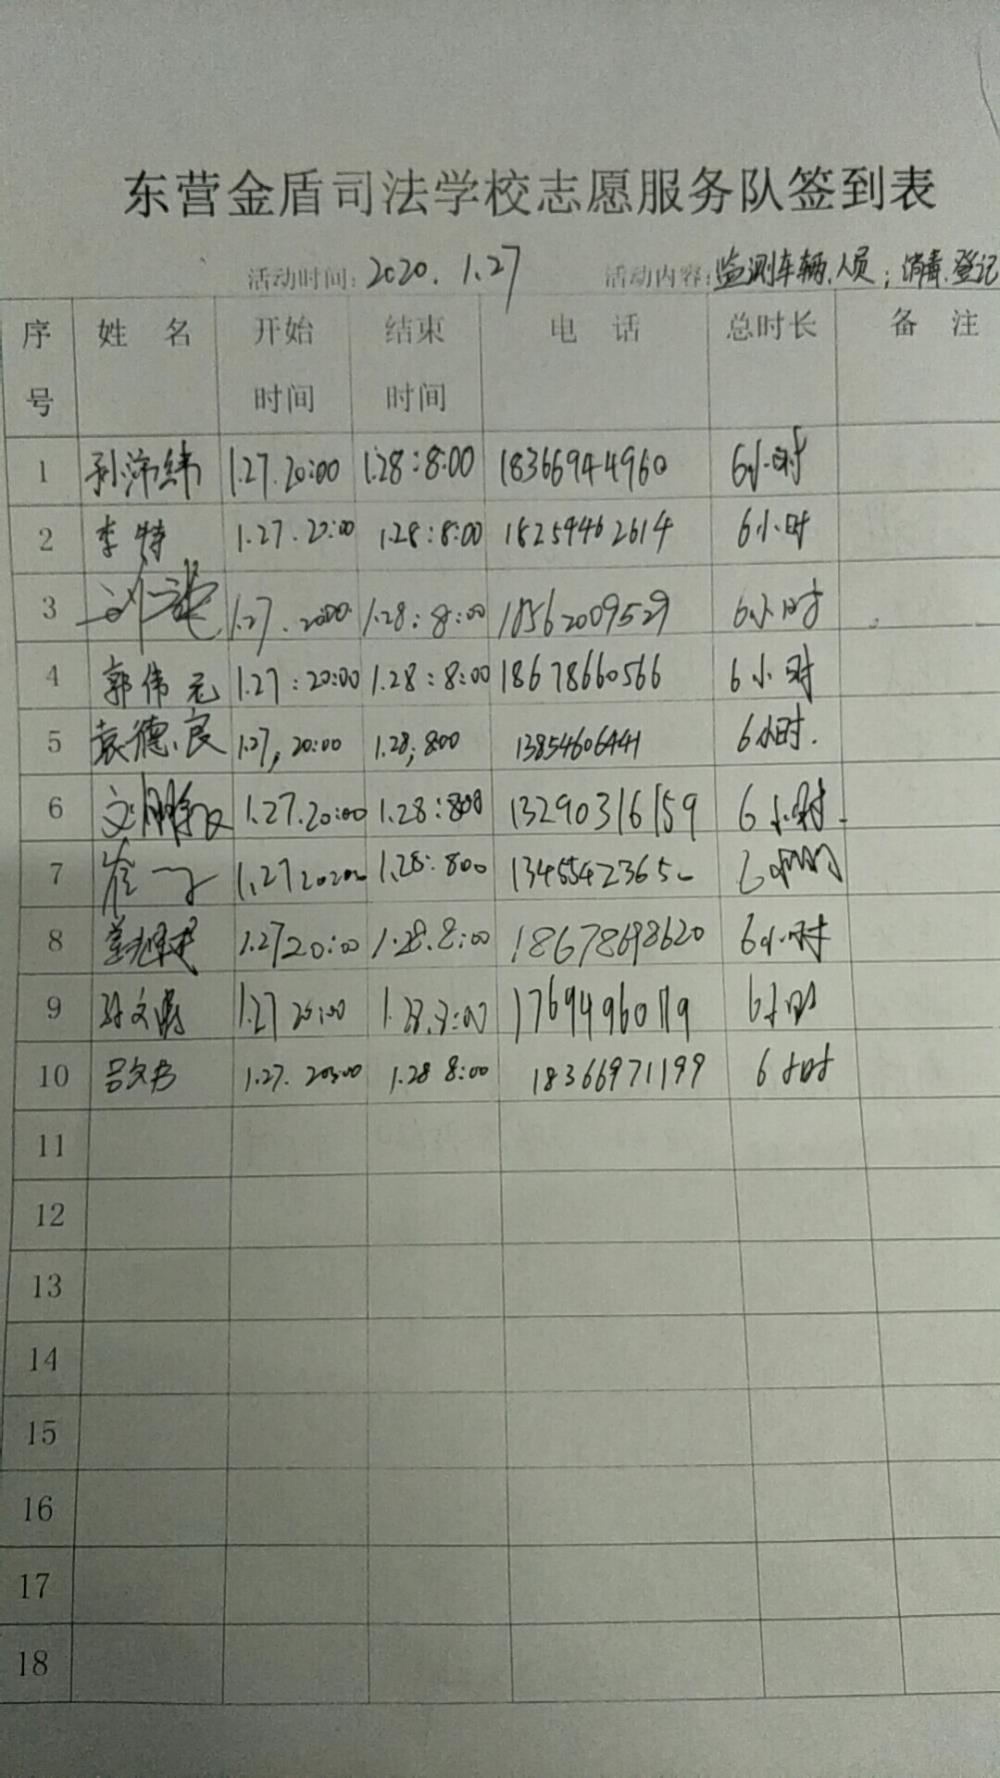 东营金盾司法学校志愿服务队签到表
活动时间:2020.1.27 活动内容:监测车辆.人员;消毒.登记
序号 姓名 开始时间 结束时间 电话 总时长 备注
1 孙沛纬 1.27.20:00 1.28:8:00 18366944960 6小时
2 李特 1.27.20:00 1.28:8:00 18259462614 6小时
3 1.27.20:00 1.28:8:00 18562009529 6小时
4 郭伟元 1.27:20:00 1.28:8:00 18678660566 6小时
5 袁德良 1.27,20:00 1.28,800 13854606441 6小时.
6 1.27.20:00 1.28:800 13290316159 6小时.
7 1.27 1.28:800 6小时
8 1.27 20:00 1.28.8:00 18678698620 6小时
9 1.27 20:00 1.28.8:00 6小时
10 1.27. 20:00 1.28 8:00 18366971199 6小时
11
12
13
14
15
16
17
18